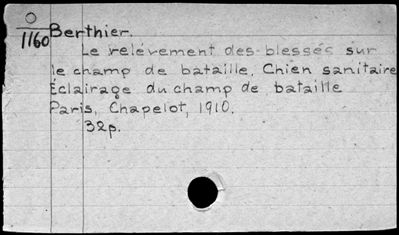 O
1160
Berthier.
Le relévement des blessés sur
le champ de bataille, Chien sanitaire
Eclairage du champ de bataille
Paris, Chapelot, 1910.
32p.